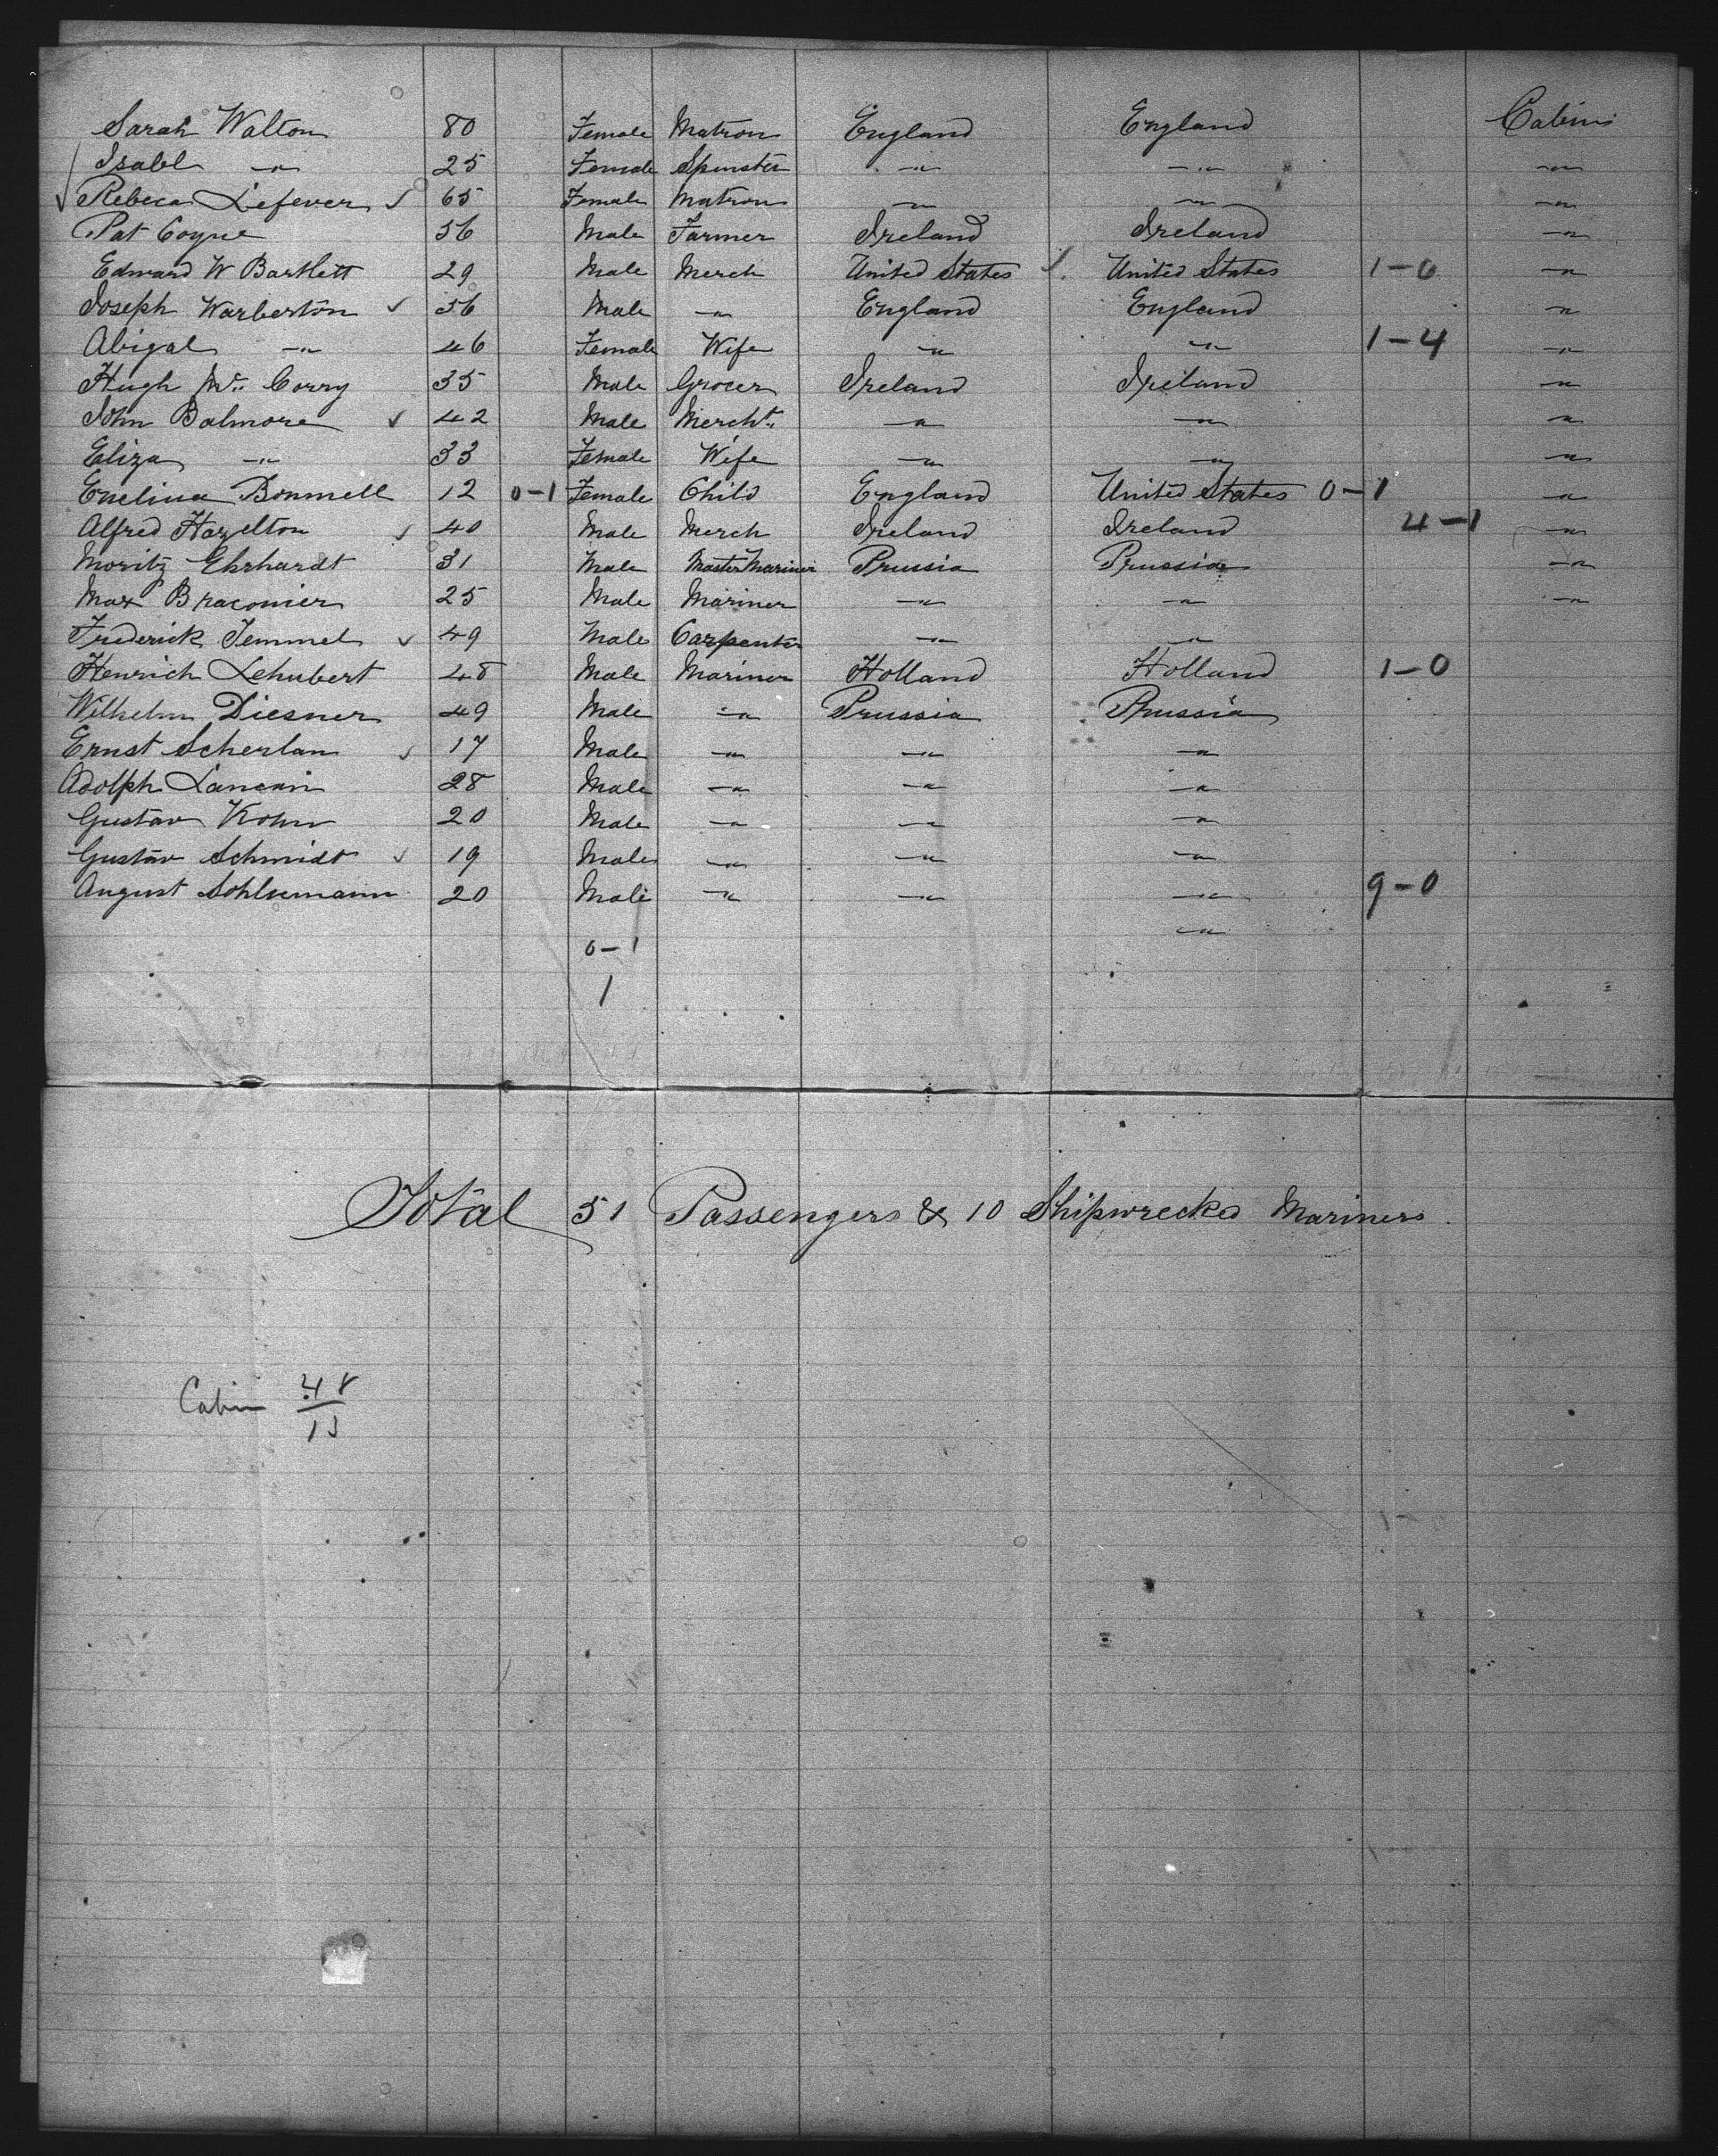 Sarah Walton 80 Female Matron England England Cabin
Isabl " 25 Female Spinster " " "
Rebeca Lefever 65 Female Matron " " "
Pat Coyne 56 Male Farmer Ireland Ireland "
Edward W Bartlett 29 Male Merch United States United States 1-0 "
Joseph Warberton 56 Male " England England "
Abigal " 46 Female Wife " " 1-4 "
Hugh Mc Corry 35 Male Grocer Ireland Ireland "
John Balmore 42 Male Mercht " " "
Eliza " 33 Female Wife " " "
Enelina Bonmell 12 0-1 Female Child England United States 0-1 "
Alfred Hazelton 40 Male Merch Ireland Ireland 4-1 "
Moritz Ehrhardt 31 Male Master Mariner Prussia Prussia "
Max Braconier 25 Male Mariner " " "
Frederick Temmel 49 Male Carpenter " "
Henrich Lehubert 48 Male Mariner Holland Holland 1-0
Wilhelm Diesner 49 Male " Prussia Prussia
Ernst Scherlan 17 Male " " "
Adolph 28 Male " " "
Gustav Kohn 20 Male " " "
Gustav Schmidt 19 Male " " "
August 20 Male " " " 9-0
"
0-1
1
Total 51 Passengers & 10 Shipwrecked Mariners
Cabin 48
13